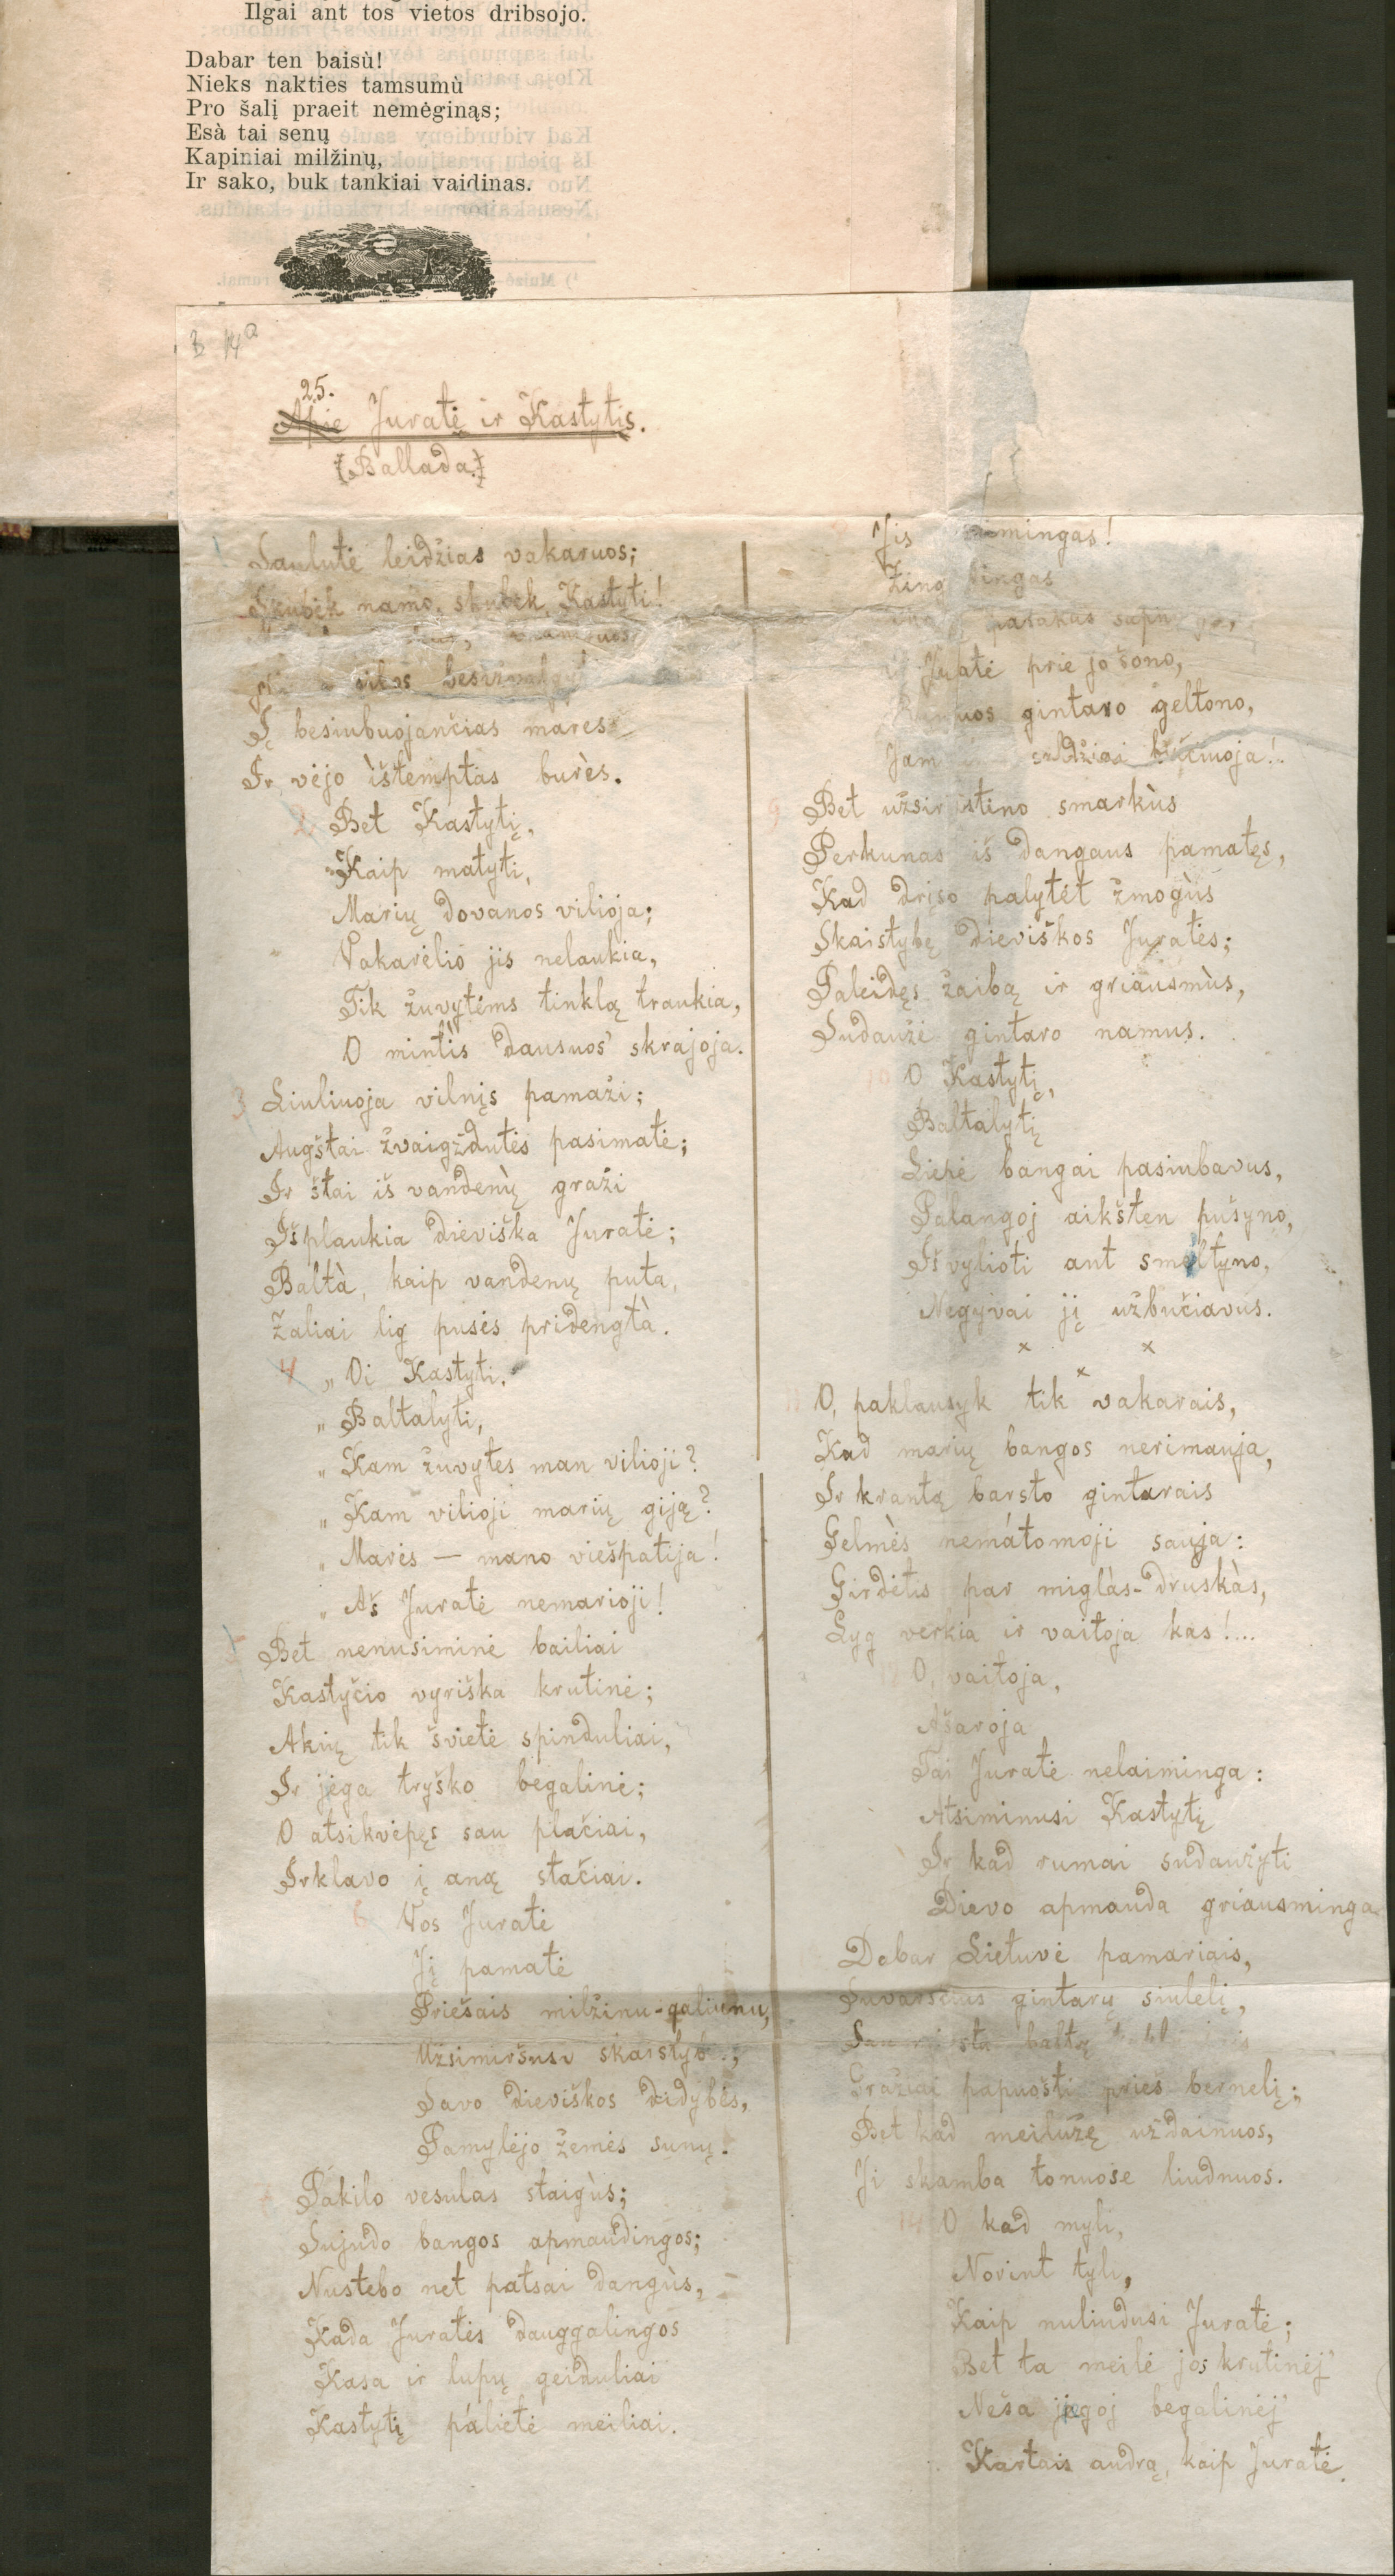 Ilgai ant tos vietos dribsojo.
Dabar ten baisù!
Nieks nakties tamsumù
Pro šalį praeit nemėginąs;
Esà tai senų
Kapiniai milžinų,
Ir sako, buk tankiai vaidinas.
25.
Apie Juratė ir Kastytis.
(Ballada.)
Saulutė leidžias vakaruos;
Skubėk namo, skubėk, Kastyti!
Į besiubuojančias mares
Ir vėjo ìštemptas burės.
2 Bet Kastytį,
Kaip matyti,
Marių dovanos vilioja;
Vakarėlio jis nelaukia,
Tik žuvytėms tinklą traukia,
O mintìs dausuos skrajoja.
3 Liuliuoja vilnįs pamaži;
Augštai žvaigždutės pasimatė;
Ir štai iš vandenų̀ graži
Išplaukia dieviška Juratė;
Baltà, kaip vandenų puta,
Žaliai lig pusės pridengtà.
4 „Oi Kastyti,
„Baltalyti,
„Kam žuvytes man vilioji?
„Kam vilioji marių giją?
„Marės — mano viešpatija!
„Aš Juratė nemarioji!
5 Bet nenusiminė bailiai
Kastyčio vyriška krutinė;
Akių tik švietė spinduliai,
Ir jėga tryško begalinė;
O atsikvėpęs sau plačiai,
Irklavo į aną stačiai.
6 Vos Juratė
Jį pamatė
Priešais milžinu-galiunu,
Užsimiršusi
Savo dieviškos didybės,
Pamylėjo žemės sunų.
Pakilo vėsulas staigùs;
Sujudo bangos apmaudingos;
Nustebo net patsai dangùs,
Kada Juratės dauggalingos
Kasa ir lupų geiduliai
Kastytį palietė meiliai.
Jis
pasakas
Juratė prie jo šono,
gintaro geltono,
Jam saldžiai bučiuoja!
9 Bet užsirustino smarkùs
Perkunas iš dangaus pamatęs,
Kad drįso palytėt žmogùs
Skaistybę dieviškos Juratės;
Paleidęs žaibą ir griausmùs,
Sudaužė gintaro namus.
10 O Kastytį,
Baltalytį
Liepė bangai pasiubavus,
Palangoj aikšten pušyno,
Išvylioti ant smėltyno,
Negyvai jį užbučiavus.
x x
x
O, paklausyk tik vakarais,
Kad marių bangos nerimauja,
Ir krantą barsto gintarais
Gelmės nemátomoji sauja:
Girdėtis par miglàs-druskàs,
Lyg verkia ir vaitoja kas!...
O, vaitoja,
Ašaroja
Tai Juratė nelaiminga:
Atsiminusi Kastytį
Ir kad rumai sudaužyti
Dievo apmauda griausminga.
Dabar Lietuvė pamariais,
Suvarsčius gintarų siulelį,
baltą
Gražiai papuošti prieš bernelį;
Bet kad meilužę uždainuos,
Ji skamba tonuose liudnuos.
14 O kad myli,
Norint tyli,
Kaip nuliudusi Juratė;
Bet ta meilė jos krutinėj
Neša jiegoj begalinėj
Kartais audrą, kaip Juratė.